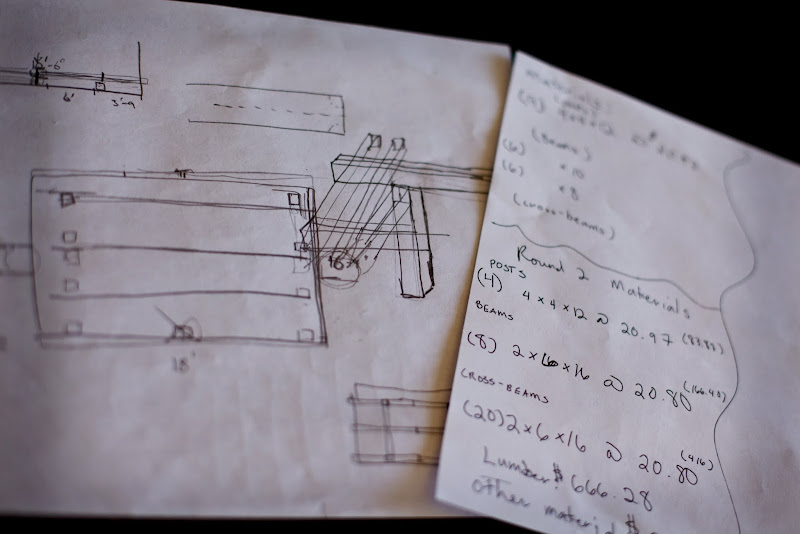 6'
3'-9
18'
Materials:
(6)
(Beams)
x 10
(6)
x 8
(cross-beams)
Round 2 Materials
POSTS
(4) 4x4x12 @ 20.97 (83.87)
BEAMS
(8) 2x6x16 @ 20.80 (166.40)
CROSS-BEAMS
(20) 2x6x16 @ 20.80 (416)
Lumber: $666.28
other material $